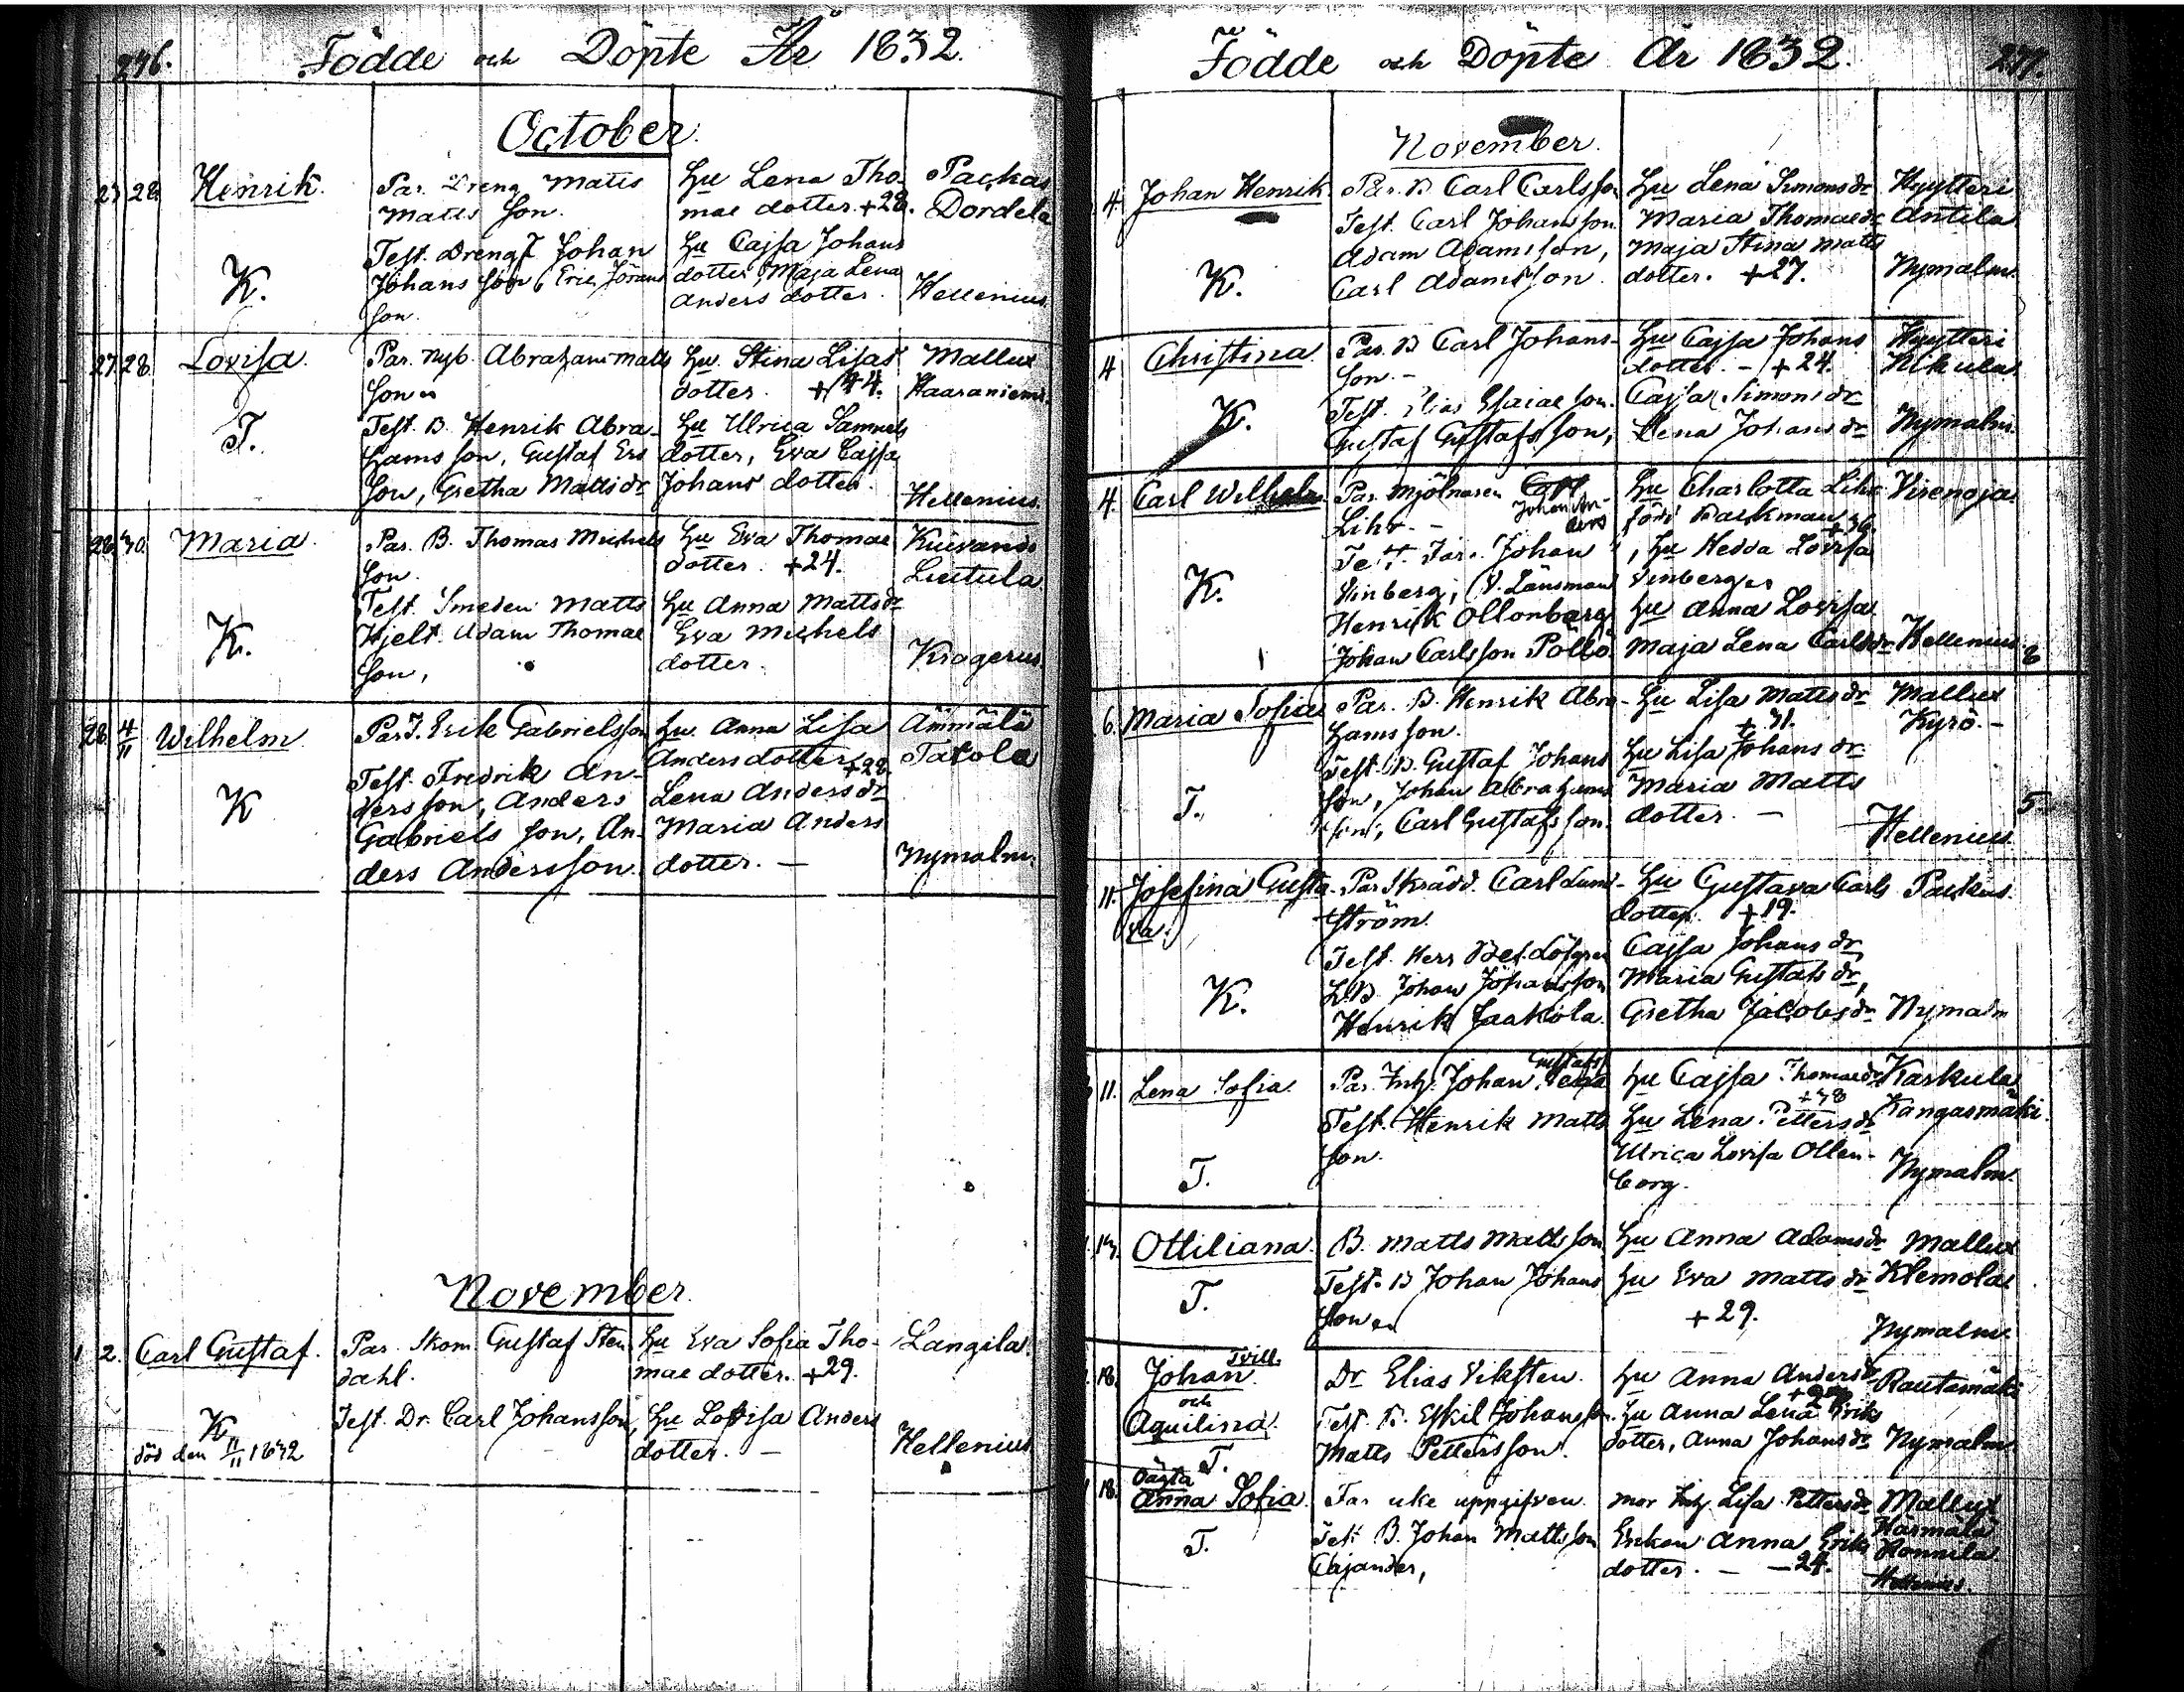 276.
Födde och Döpte År 1832.
October.
27 28 Henrik. Par. Dreng Matts Hu Lena Tho- Packas
Matts Son. mae dotter. +28. Dordela
Test. Drengˢ Johan Hu Cajsa Johans
K. Johans Son, Eric Jörans dotter, Maja Lena
Son. Anders dotter. Hellenius.
27. 28. Lovisa. Par. Nyb. Abraham Matts Hu. Stina Lisas Mallux
Son dotter. +44. Haaraniemi.
T. Test. B. Henrik Abra- Hu Ulrica Samuels
hams Son, Gustaf Ers dotter, Eva Cajsa
Son, Gretha Matts dr Johans dotter. Hellenius.
28. 30. Maria. Par. B. Thomas Michels Hu Eva Thomae
Son. dotter. +24.
Test. Smeden Matts Hu Anna Matts dr
K. Hjelt. Adam Thomae Eva Michels
Son, dotter. Kragerus.
28. 4/11 Wilhelm Par. T. Erik Gabrielsson Hu. Anna Lisa Ämmälä
Anders dotter +28. Tatola
Test. Fredrik An- Lena Anders dr
K ders Son, Anders Maria Anders
Gabriels Son, An- dotter. – Nymalm.
ders Andersson.
November.
1 2. Carl Gustaf. Par. Skom. Gustaf Sten Hu Eva Sofia Tho- Langila.
dahl. mae dotter. +29.
K. Test. Dr. Carl Johansson, Hu Lovisa Anders
död den 11/11 1832 dotter. – Hellenius.
Födde och Döpte År 1832. 277.
November.
4. Johan Henrik Par. B Carl Carlsson Hu Lena Simons dr Hyytteri
Test. Carl Johansson Maria Thomae dr Antila
Adam Adamsson, Maja Stina Matts
K. Carl Adamsson. dotter. +27. Nymalm.
4 Christina. Par. B Carl Johans- Hu Cajsa Johans Hyytteri
Son. – dotter. – +24. Nikula.
K. Test. Elias Esaiae Son. Cajsa Simons dr
Gustaf Gustafs Son, Lena Johans dr Nymalm.
4. Carl Wilhelm. Par. Mjölnaren Johan An- Hu Charlotta Lihr Virenoja.
Lihr. – ders född Packman +36.
Test. Johan , Hu Hedda Lovisa
K. Vinberg, V. Länsman Vinberg
Henrik Ollonberg Hu Anna Lovisa
Johan Carlsson Pollö. Maja Lena Carls dr Hellenius.
6. Maria Sofia Par. B. Henrik Abra- Hu Lisa Matts dr Mallux
hamsson. +31. Kyrö. –
Test. B. Gustaf Johans Hu Lisa Johans dr.
T. Son, Johan Abrahams Maria Matts
Son, Carl Gustafs Son. dotter. – 5.
Hellenius.
11. Josefina Gusta- Par. Skrädd. Carl Lund- Hu Gustava Carls
va. ström. dotter. +19.
Test. Herr Bef. Löfgren Cajsa Johans dr
K. L.B. Johan Johansson Maria Gustafs dr,
Henrik Jaakola. Gretha Jacobs dr Nymalm
11. Lena Sofia. Par. Inh. Johan Gustafs Hu Cajsa Thomae dr Karkula
+38 Kangasmäki.
Test. Henrik Matts Hu Lena Petters dr
Son. Ulrica Lovisa Ollen-
T. borg. Nymalm.
13. Ottiliana. B. Matts Matts Son Hu Anna Adams dr Mallux
T. Test. B Johan Johans Hu Eva Matts dr Klemola
Son +29.
Nymalm.
18. Tvill.
Johan Dr Elias Viksten. Hu Anna Anders dr Rautamäki
och Test. B. Eskil Johansson. Hu Anna Lena Eriks
Aquilina. Matts Pettersson. dotter, Anna Johans dr Nymalm.
T.
18. Oägta
Anna Sofia. Far icke uppgifven. Mor Inh. Lisa Petters dr Mallux
T. Test B. Johan Mattsson Enkan Anna Eriks Härmälä
Cajander, dotter. – –24. Ronnila
Hellenius